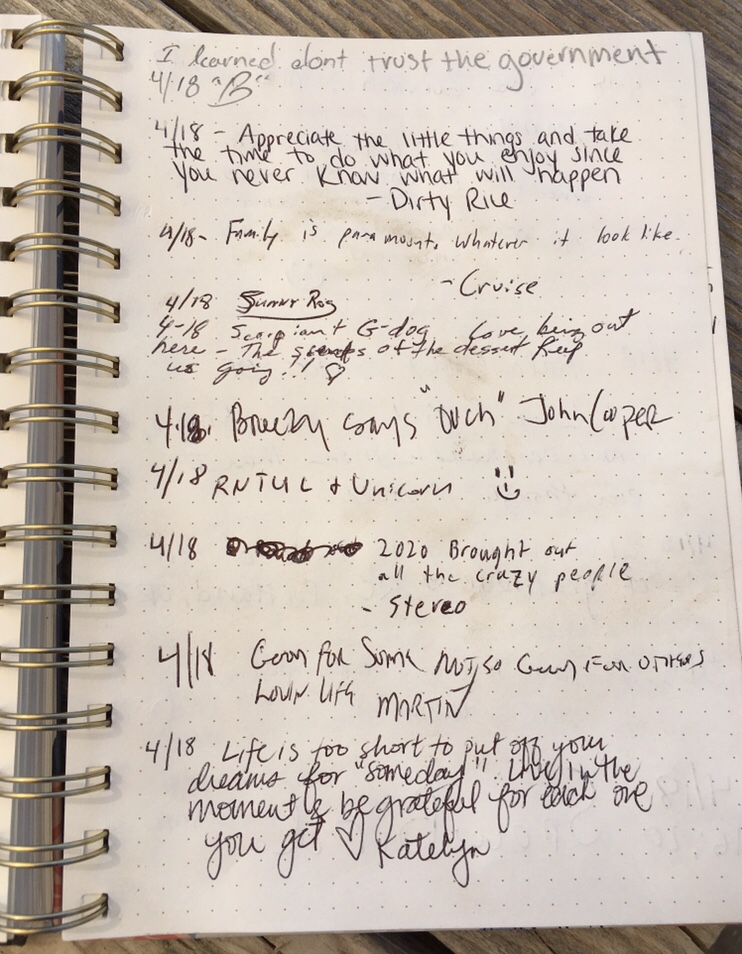 I learned dont trust the government
4/18 "B"
4/18 - Appreciate the little things and take
the time to do what you enjoy since
you never know what will happen
- Dirty Rice
4/18 - Family is paramount, whatever it look like.
- Cruise
4/18
4-18 G-dog Love being out
here - The of the dessert keep
us going!! ♡
4.18. Breezy says "ouch" John Cooper
4/18 RNTUL + Unicorn
4/18 2020 Brought out
all the crazy people
- Stereo
4/18 Good for Some Not so Good For others
Lovin Life MARTIN
4/18 Life is too short to put off your
dreams for "someday". Live in the
moment & be grateful for each one
you get ♡ Katelyn